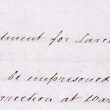 diment for Larc
be imprisoned
rrection at